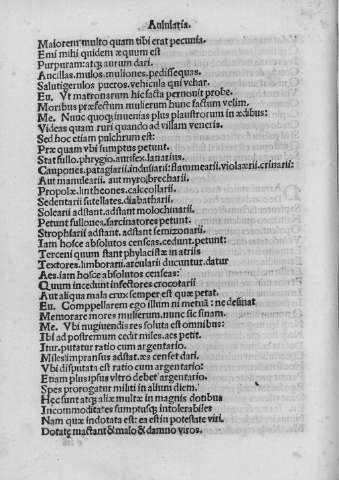 Aulularia.
Maiorem multo quam tibi erat pecunia.
Emi mihi quidem æquum est
Purpuram: atq; aurum dari.
Ancillas. mulos. muliones. pedissequas.
Salutigerulos pueros. vehicula qui vehar.
Eu. Vt matronarum hic facta pernouit probe.
Moribus præfectum mulierum hunc factum velim.
Me. Nunc quoq; inuenias plus plaustrorum in ædibus:
Videas quam ruri quando ad villam veneris.
Sed hoc etiam pulchrum est:
Præ quam vbi sumptus petunt.
Stat fullo. phrygio. aurifex. lanarius.
Caupones. patagiarii. indusiarii: flammearii. violaxrii. crinarii:
Aut manulearii. aut myrobrecharii.
Propolæ. lintheones. calceollarii.
Sedentarii sutellates. diabatharii.
Solearii adstant. adstant molochinarii.
Petunt fullones. sarcinatores petunt.
Strophiarii adstant. adstant semizonarii.
Iam hosce absolutos censeas. cedunt. petunt:
Terceni quum stant phylacistæ in atriis
Textores. limborarii. arcularii ducuntur. datur
Aes. iam hosce absolutos censeas:
Quum incedunt infectores crocotarii
Aut aliqua mala crux semper est quæ petat.
Eu. Comppellarem ego illum ni metuã: ne desinat
Memorare mores mulierum. nunc sic sinam.
Me. Vbi nugiuendis res soluta est omnibus:
Ibi ad postremum cedit miles. aes petit.
Itur. putatur ratio cum argentario.
Miles impransus adstat. æs censet dari.
Vbi disputata est ratio cum argentario:
Etiam plus ipsus vltro debet argentario.
Spes prorogatur militi in alium diem.
Hęc sunt atq; aliæ multæ in magnis dotibus
Incommoditates sumptusq; intolerabiles
Nam quæ indotata est: ea est in potestate viri.
Dotatę mactant & malo & damno viros.